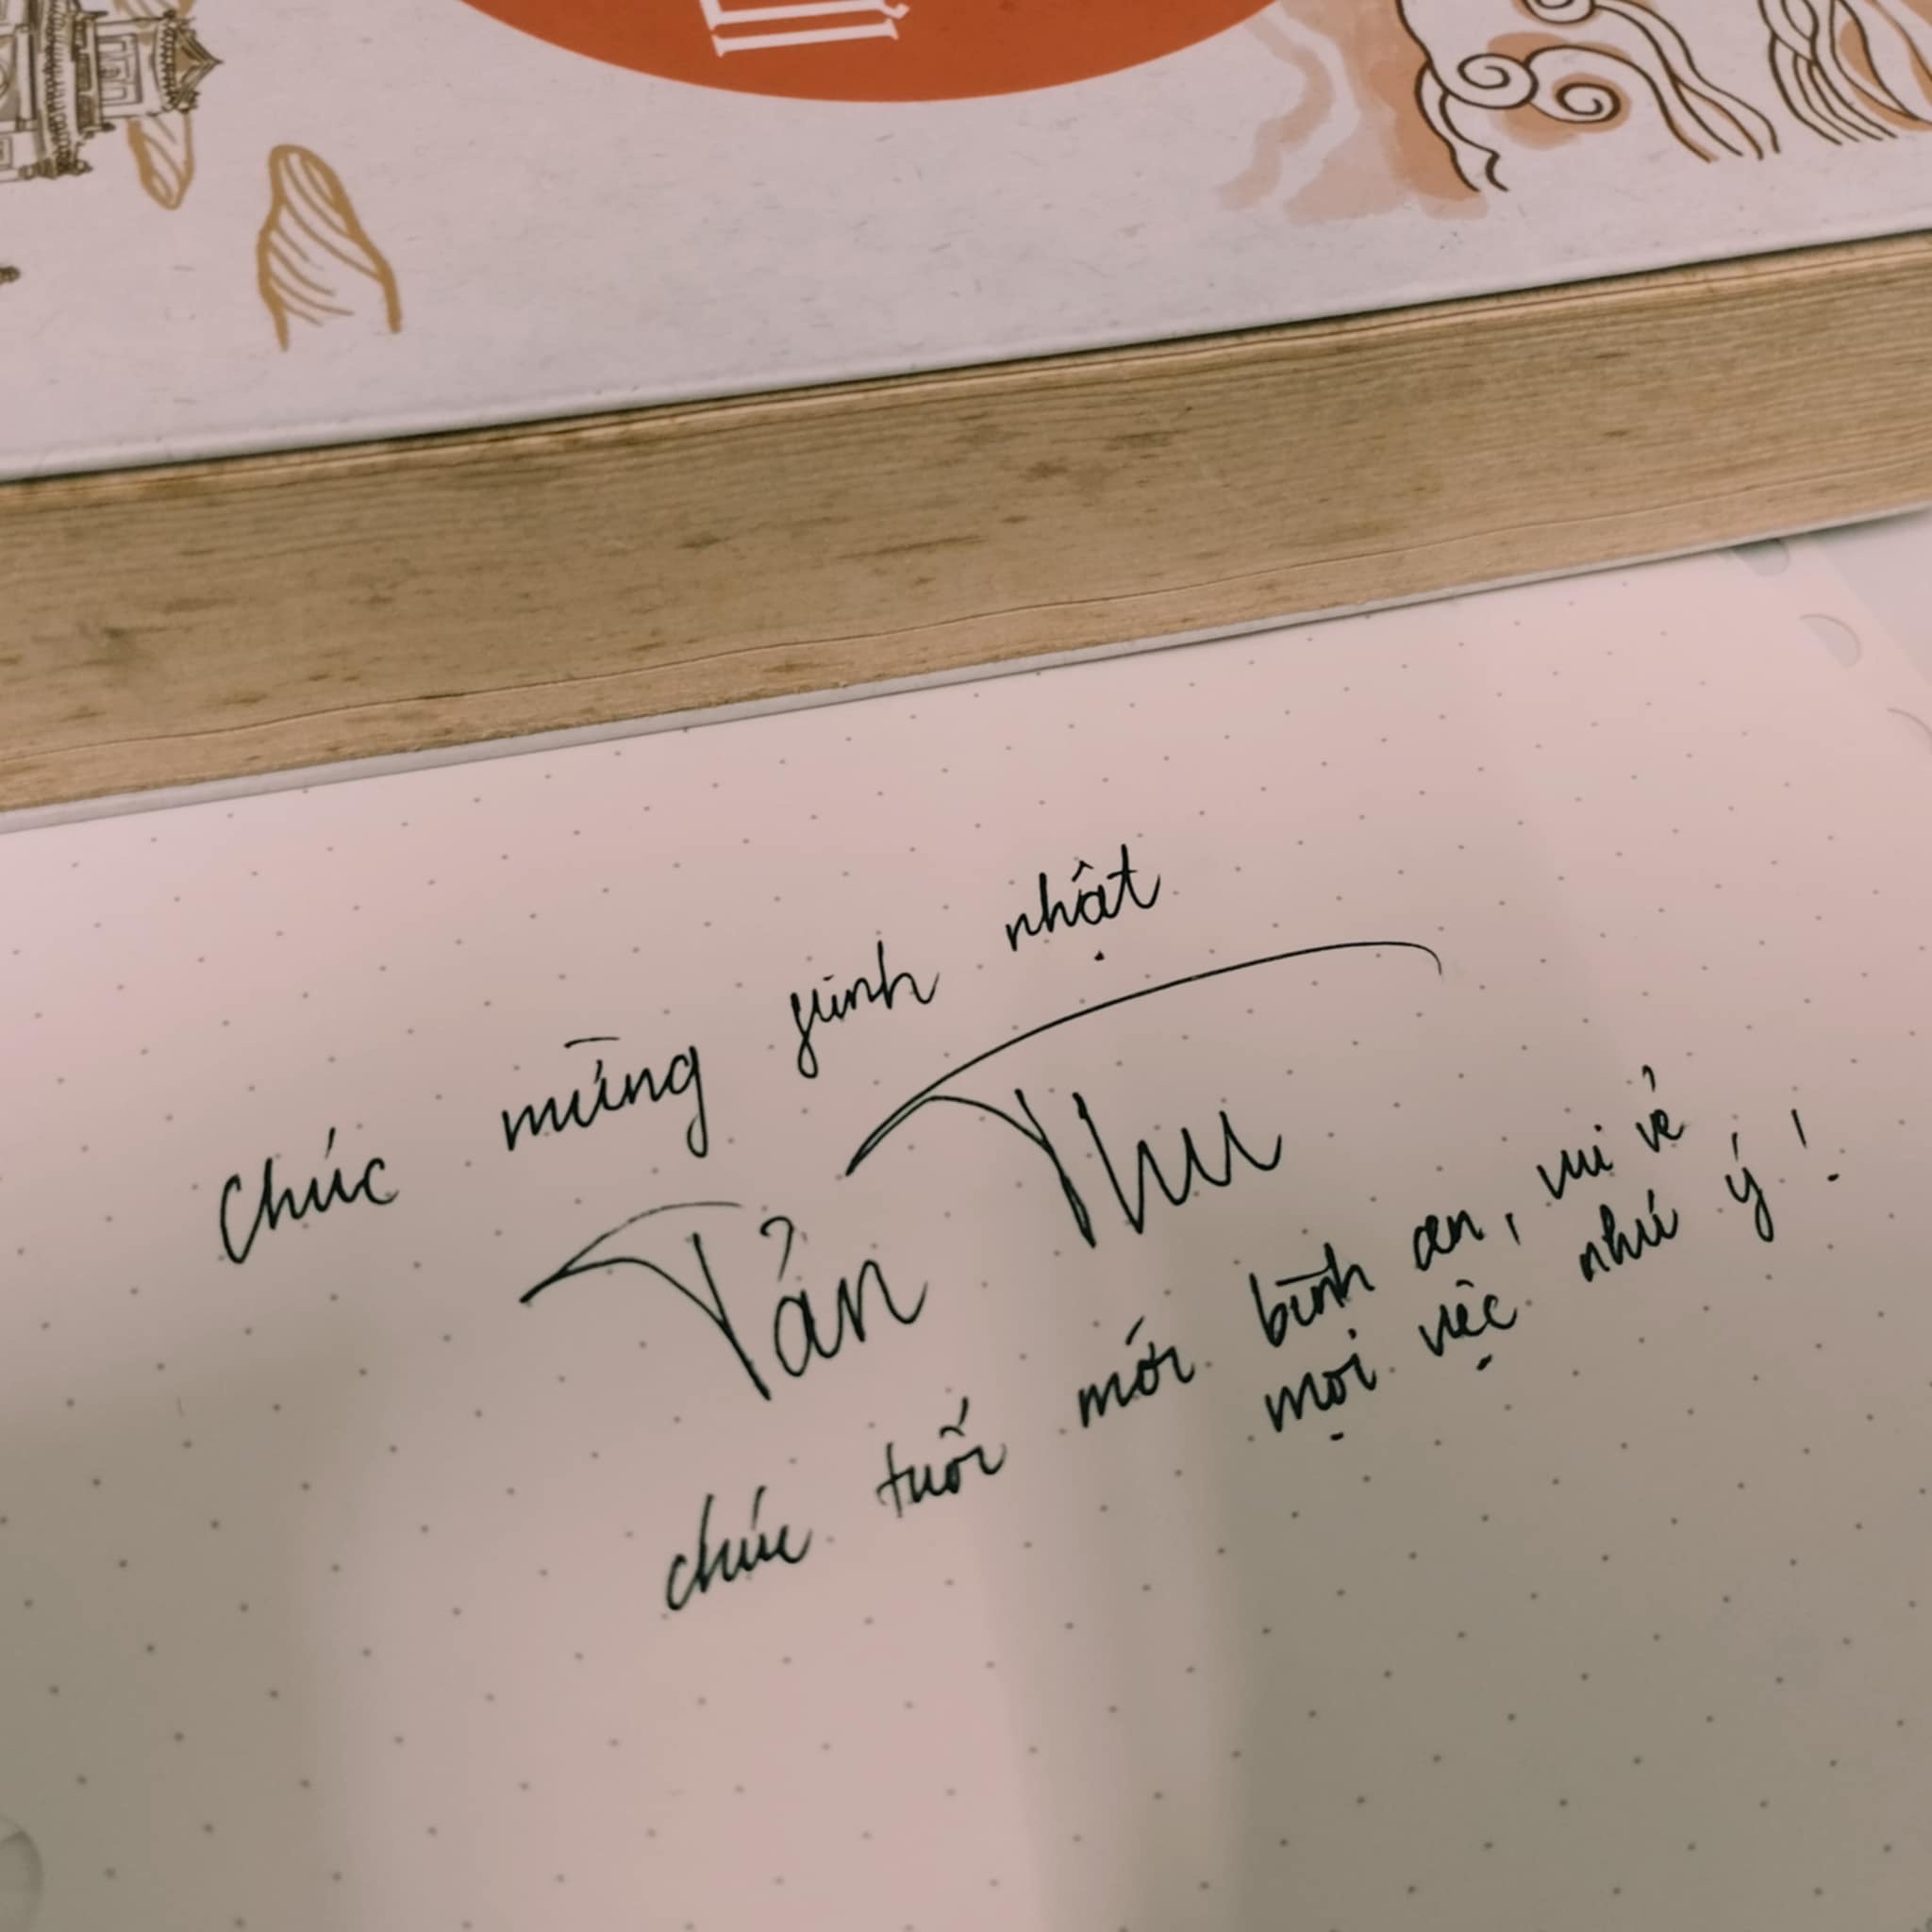 Chúc mừng sinh nhật
Tản Thu
chúc tuổi mới bình an, vui vẻ
mọi việc như ý!